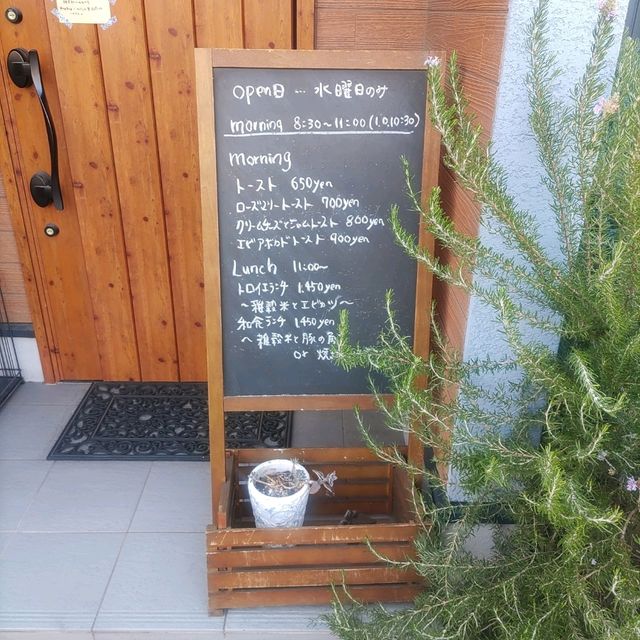 open日 … 水曜日のみ
morning 8:30～11:00 (L.O,10:30)
morning
トースト 650yen
ローズマリートースト 700yen
クリームチーズとジャムトースト 800yen
エビアボカドトースト 900yen
Lunch 11:00～
トロイエランチ 1,450yen
～雑穀米とエビカツ～
和食ランチ 1,450yen
～雑穀米と豚の角
or 焼